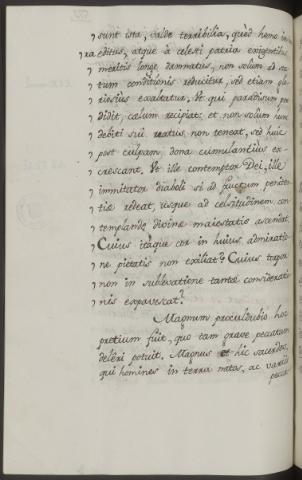 sunt ista, valde terribilia, quòd homo in
ra editus, atque à celesti patria exigentibus
meritis longè damnatus, non solum ad sta-
tum conditionis reducitur, sed etiam glo-
riosius exaltatur. Et qui paradisum per-
didit, cælum recipiat: et non solum hunc
debiti sui reatus non teneat, sed huic
post culpam, dona cumulantius ex-
crescant. Et ille contemptor Dei, ille
immitator diaboli si ad fructum peniten-
tiæ redeat, usque ad celsitudinem con-
templandæ divinæ maiestatis ascendat.
Cuius itaque cor in huius admiratio-
ne pietatis non exiliat? Cuius torpor
non in sublevatione tantæ consideratio-
nis expavescat?
Magnum proculdubio hoc
pretium fuit, quo tam grave peccatum
deléri potuit. Magnus et hic sacerdos,
qui homines in terra natos, ac variis
peccat